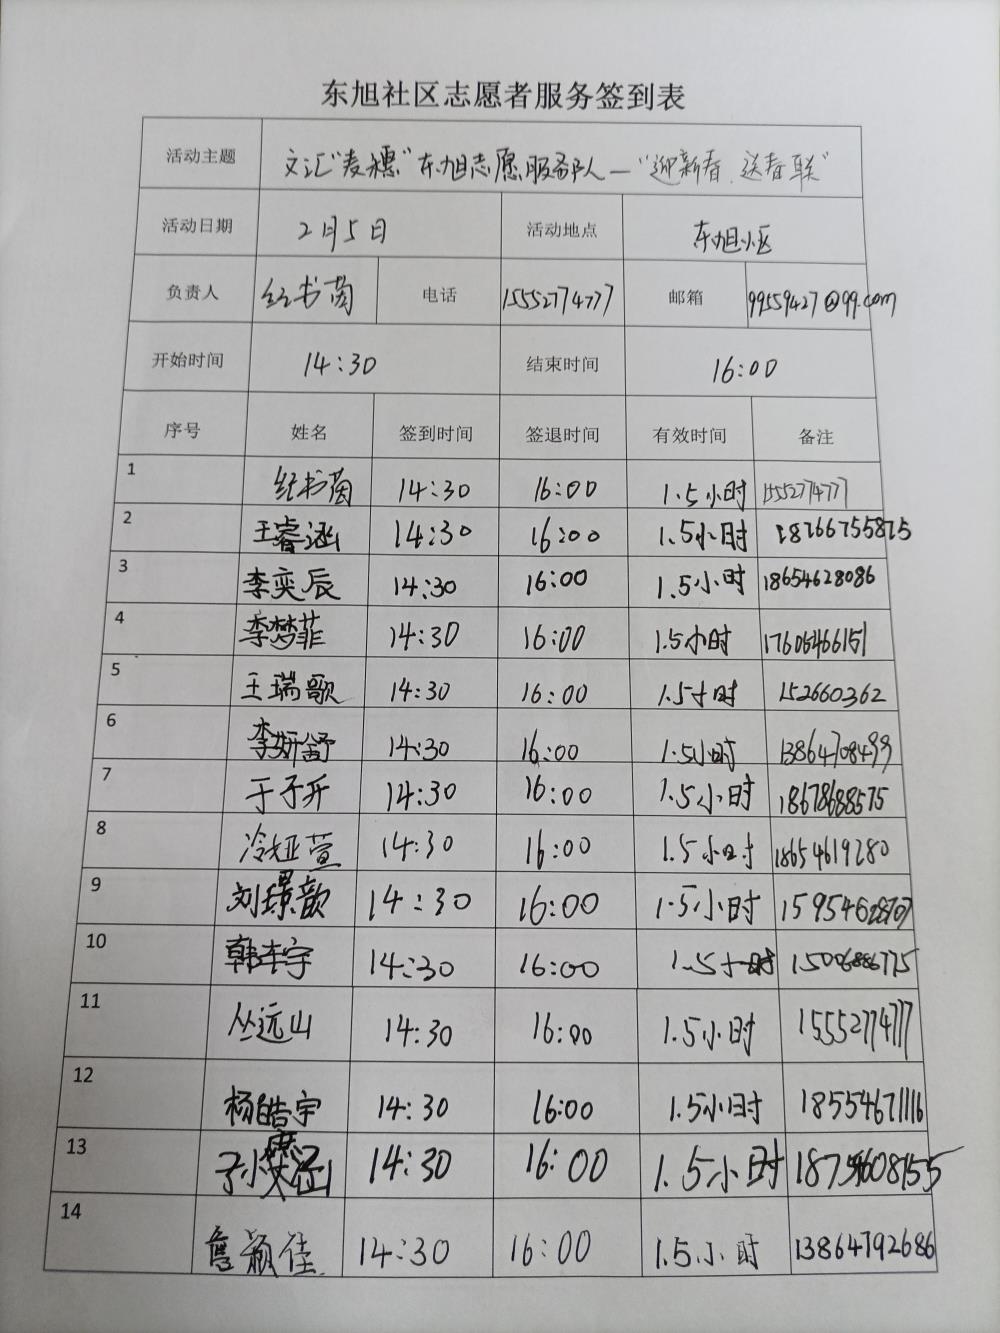 东旭社区志愿者服务签到表
活动主题 文汇"麦穗"东旭志愿服务队—"迎新春、送春联"
活动日期 2月5日 活动地点 东旭小区
负责人 纪书茵 电话 15552774777 邮箱 99559427@qq.com
开始时间 14:30 结束时间 16:00
序号 姓名 签到时间 签退时间 有效时间 备注
1 纪书茵 14:30 16:00 1.5小时 15552774777
2 王睿涵 14:30 16:00 1.5小时 18766755875
3 李奕辰 14:30 16:00 1.5小时 18654628086
4 李梦菲 14:30 16:00 1.5小时 17605466151
5 王瑞歌 14:30 16:00 1.5小时 152660362
6 李妍舒 14:30 16:00 1.5小时 13864708499
7 于子开 14:30 16:00 1.5小时 18678688575
8 冷娅萱 14:30 16:00 1.5小时 18654619280
9 刘璟歆 14:30 16:00 1.5小时 15954628707
10 韩 宇 14:30 16:00 1.5小时 15006886775
11 丛远山 14:30 16:00 1.5小时 15552774777
12 杨皓宇 14:30 16:00 1.5小时 18554671116
13 14:30 16:00 1.5小时 18754608155
14 詹颖佳 14:30 16:00 1.5小时 13864792686